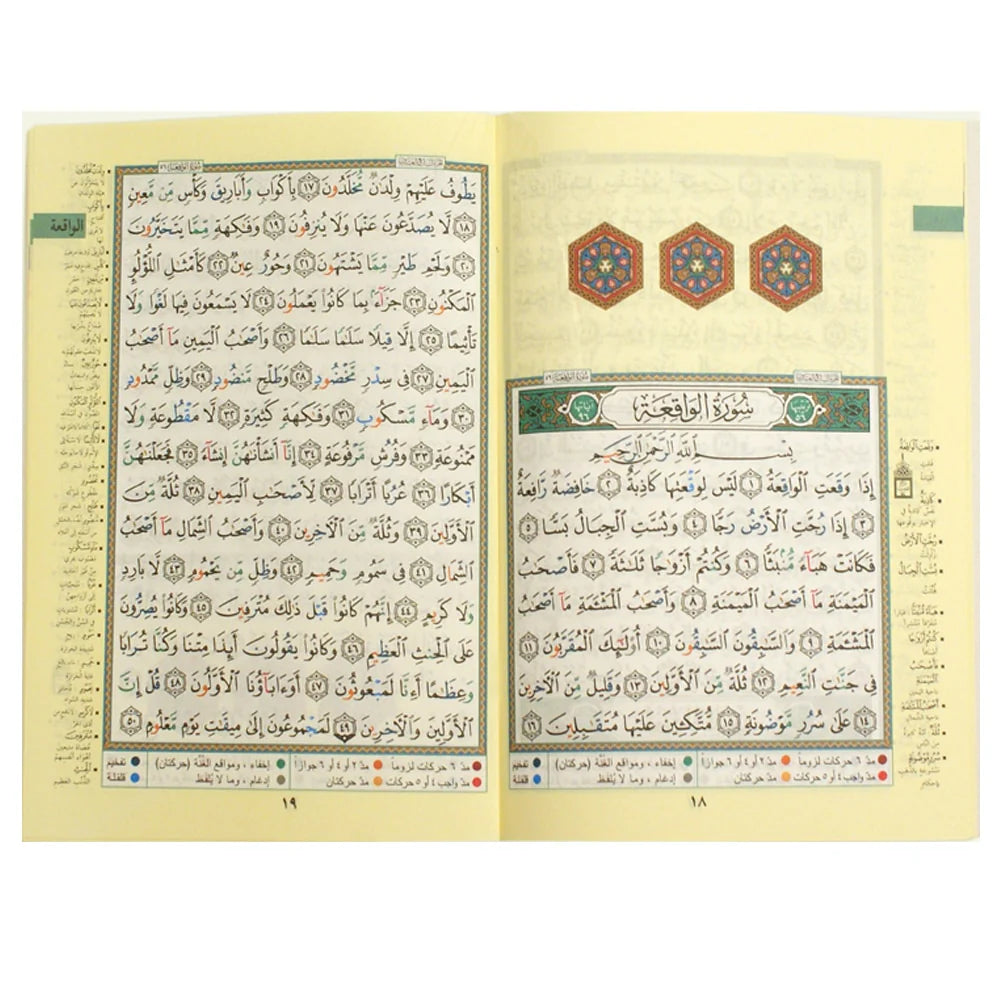 سُورَةُ الوَاقِعَةِ
تَرتيبُها ٥٦
آيَاتُهَا ٩٦
بِسْمِ ٱللَّهِ ٱلرَّحْمَٰنِ ٱلرَّحِيمِ
إِذَا وَقَعَتِ ٱلْوَاقِعَةُ ١ لَيْسَ لِوَقْعَتِهَا كَاذِبَةٌ ٢ خَافِضَةٌ رَّافِعَةٌ
٣ إِذَا رُجَّتِ ٱلْأَرْضُ رَجًّا ٤ وَبُسَّتِ ٱلْجِبَالُ بَسًّا ٥
فَكَانَتْ هَبَآءً مُّنۢبَثًّا ٦ وَكُنتُمْ أَزْوَٰجًا ثَلَٰثَةً ٧ فَأَصْحَٰبُ
ٱلْمَيْمَنَةِ مَآ أَصْحَٰبُ ٱلْمَيْمَنَةِ ٨ وَأَصْحَٰبُ ٱلْمَشْـَٔمَةِ مَآ أَصْحَٰبُ
ٱلْمَشْـَٔمَةِ ٩ وَٱلسَّٰبِقُونَ ٱلسَّٰبِقُونَ ١٠ أُو۟لَٰٓئِكَ ٱلْمُقَرَّبُونَ ١١
فِى جَنَّٰتِ ٱلنَّعِيمِ ١٢ ثُلَّةٌ مِّنَ ٱلْأَوَّلِينَ ١٣ وَقَلِيلٌ مِّنَ ٱلْءَاخِرِينَ
١٤ عَلَىٰ سُرُرٍ مَّوْضُونَةٍ ١٥ مُّتَّكِـِٔينَ عَلَيْهَا مُتَقَٰبِلِينَ ١٦
مدّ ٦ حركات لزوماً مدّ ٢ أو ٤ أو ٦ جوازاً إخفاء ، ومواقع الغُنَّة (حركتان) تفخيم
مدّ واجب ٤ أو ٥ حركات مدّ حركتان إدغام ، وما لا يُلفَظ قلقلة
١٨
الواقعة
يَطُوفُ عَلَيْهِمْ وِلْدَٰنٌ مُّخَلَّدُونَ ١٧ بِأَكْوَابٍ وَأَبَارِيقَ وَكَأْسٍ مِّن مَّعِينٍ
١٨ لَّا يُصَدَّعُونَ عَنْهَا وَلَا يُنزِفُونَ ١٩ وَفَٰكِهَةٍ مِّمَّا يَتَخَيَّرُونَ
٢٠ وَلَحْمِ طَيْرٍ مِّمَّا يَشْتَهُونَ ٢١ وَحُورٌ عِينٌ ٢٢ كَأَمْثَٰلِ ٱللُّؤْلُؤِ
ٱلْمَكْنُونِ ٢٣ جَزَآءًۢ بِمَا كَانُوا۟ يَعْمَلُونَ ٢٤ لَا يَسْمَعُونَ فِيهَا لَغْوًا وَلَا
تَأْثِيمًا ٢٥ إِلَّا قِيلًا سَلَٰمًا سَلَٰمًا ٢٦ وَأَصْحَٰبُ ٱلْيَمِينِ مَآ أَصْحَٰبُ
ٱلْيَمِينِ ٢٧ فِى سِدْرٍ مَّخْضُودٍ ٢٨ وَطَلْحٍ مَّنضُودٍ ٢٩ وَظِلٍّ مَّمْدُودٍ
٣٠ وَمَآءٍ مَّسْكُوبٍ ٣١ وَفَٰكِهَةٍ كَثِيرَةٍ ٣٢ لَّا مَقْطُوعَةٍ وَلَا
مَمْنُوعَةٍ ٣٣ وَفُرُشٍ مَّرْفُوعَةٍ ٣٤ إِنَّآ أَنشَأْنَٰهُنَّ إِنشَآءً ٣٥ فَجَعَلْنَٰهُنَّ
أَبْكَارًا ٣٦ عُرُبًا أَتْرَابًا ٣٧ لِّأَصْحَٰبِ ٱلْيَمِينِ ٣٨ ثُلَّةٌ مِّنَ
ٱلْأَوَّلِينَ ٣٩ وَثُلَّةٌ مِّنَ ٱلْءَاخِرِينَ ٤٠ وَأَصْحَٰبُ ٱلشِّمَالِ مَآ أَصْحَٰبُ
ٱلشِّمَالِ ٤١ فِى سَمُومٍ وَحَمِيمٍ ٤٢ وَظِلٍّ مِّن يَحْمُومٍ ٤٣ لَّا بَارِدٍ
وَلَا كَرِيمٍ ٤٤ إِنَّهُمْ كَانُوا۟ قَبْلَ ذَٰلِكَ مُتْرَفِينَ ٤٥ وَكَانُوا۟ يُصِرُّونَ
عَلَى ٱلْحِنثِ ٱلْعَظِيمِ ٤٦ وَكَانُوا۟ يَقُولُونَ أَئِذَا مِتْنَا وَكُنَّا تُرَابًا
وَعِظَٰمًا أَءِنَّا لَمَبْعُوثُونَ ٤٧ أَوَءَابَآؤُنَا ٱلْأَوَّلُونَ ٤٨ قُلْ إِنَّ
ٱلْأَوَّلِينَ وَٱلْءَاخِرِينَ ٤٩ لَمَجْمُوعُونَ إِلَىٰ مِيقَٰتِ يَوْمٍ مَّعْلُومٍ ٥٠
مدّ ٦ حركات لزوماً مدّ ٢ أو ٤ أو ٦ جوازاً إخفاء ، ومواقع الغُنَّة (حركتان) تفخيم
مدّ واجب ٤ أو ٥ حركات مدّ حركتان إدغام ، وما لا يُلفَظ قلقلة
١٩